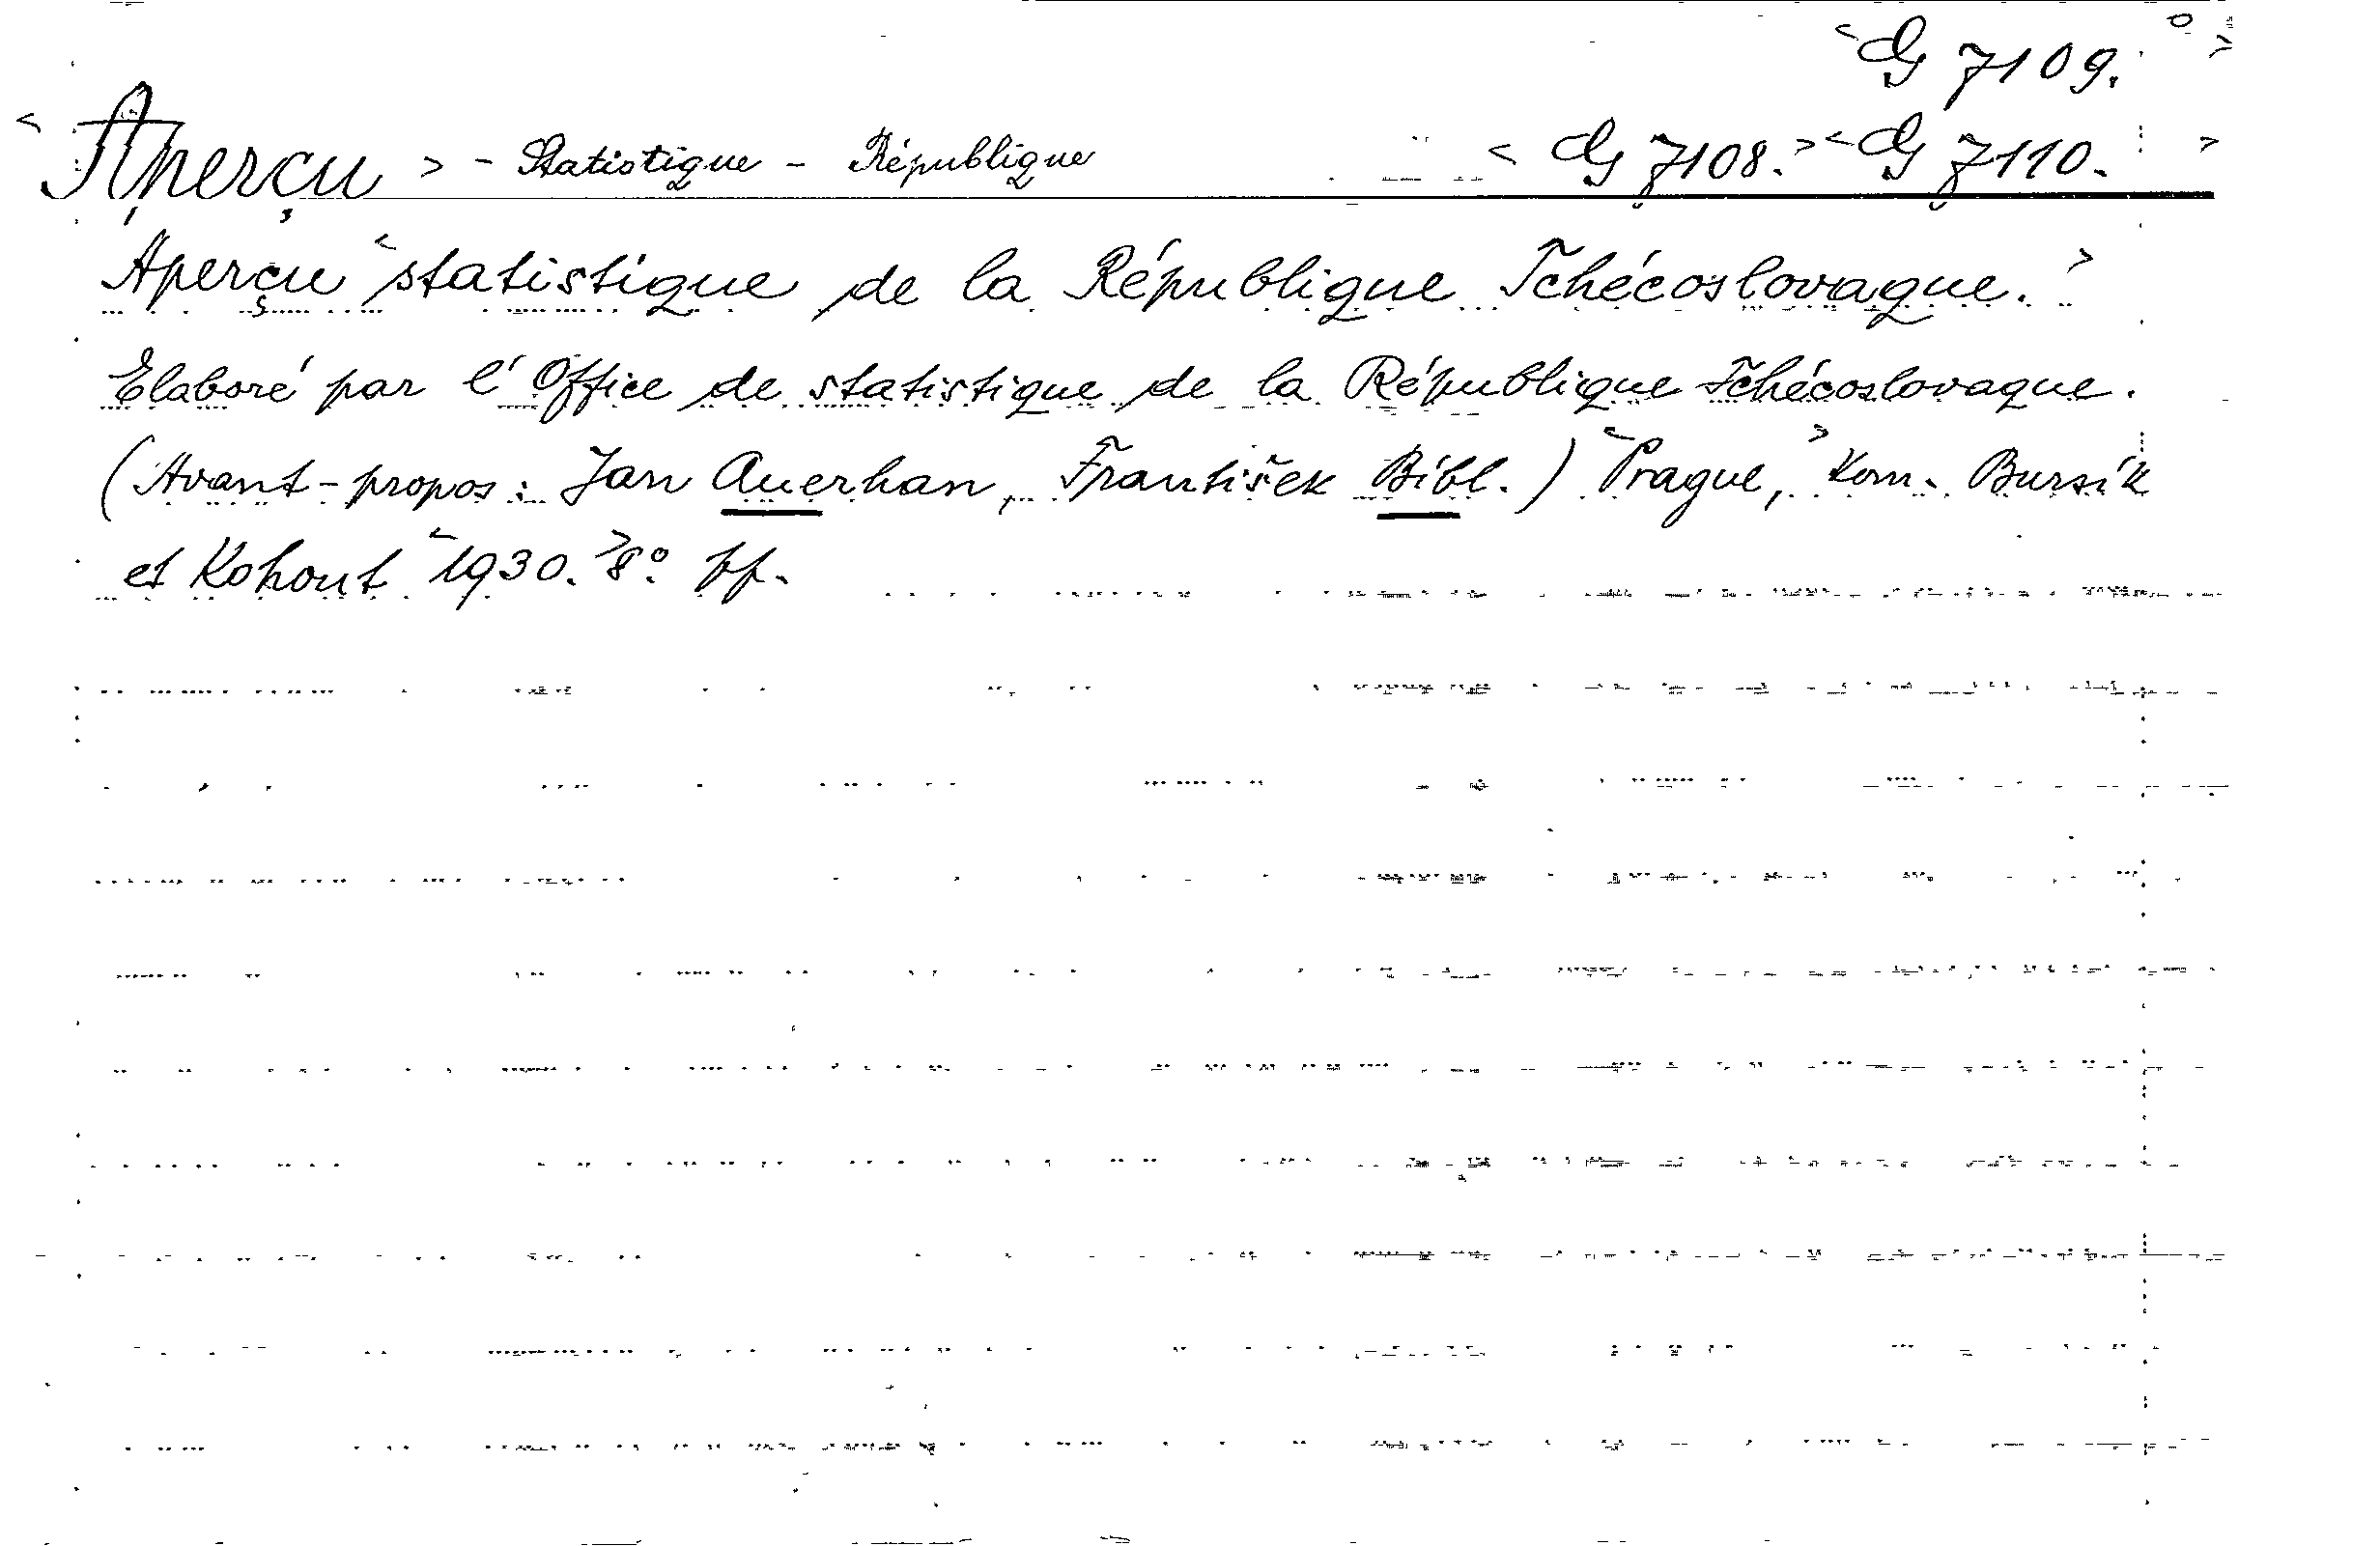 <G 7109.>
<Aperçu> - Statistique - République <G 7108.> <G 7110.>
Aperçu <statistique de la République Tchécoslovaque.>
Elaboré par l'Office de statistique de la République Tchécoslovaque.
(Avant-propos: Jan Auerhan, František Bíbl.) <Prague,> Kom. Bursík
et Kohout <1930.> 8° pp.